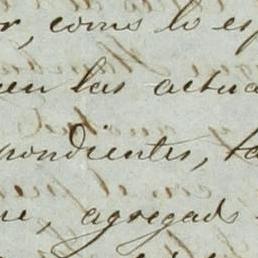 r, como lo es
en las actua
pondientes, ta
ne, agregado